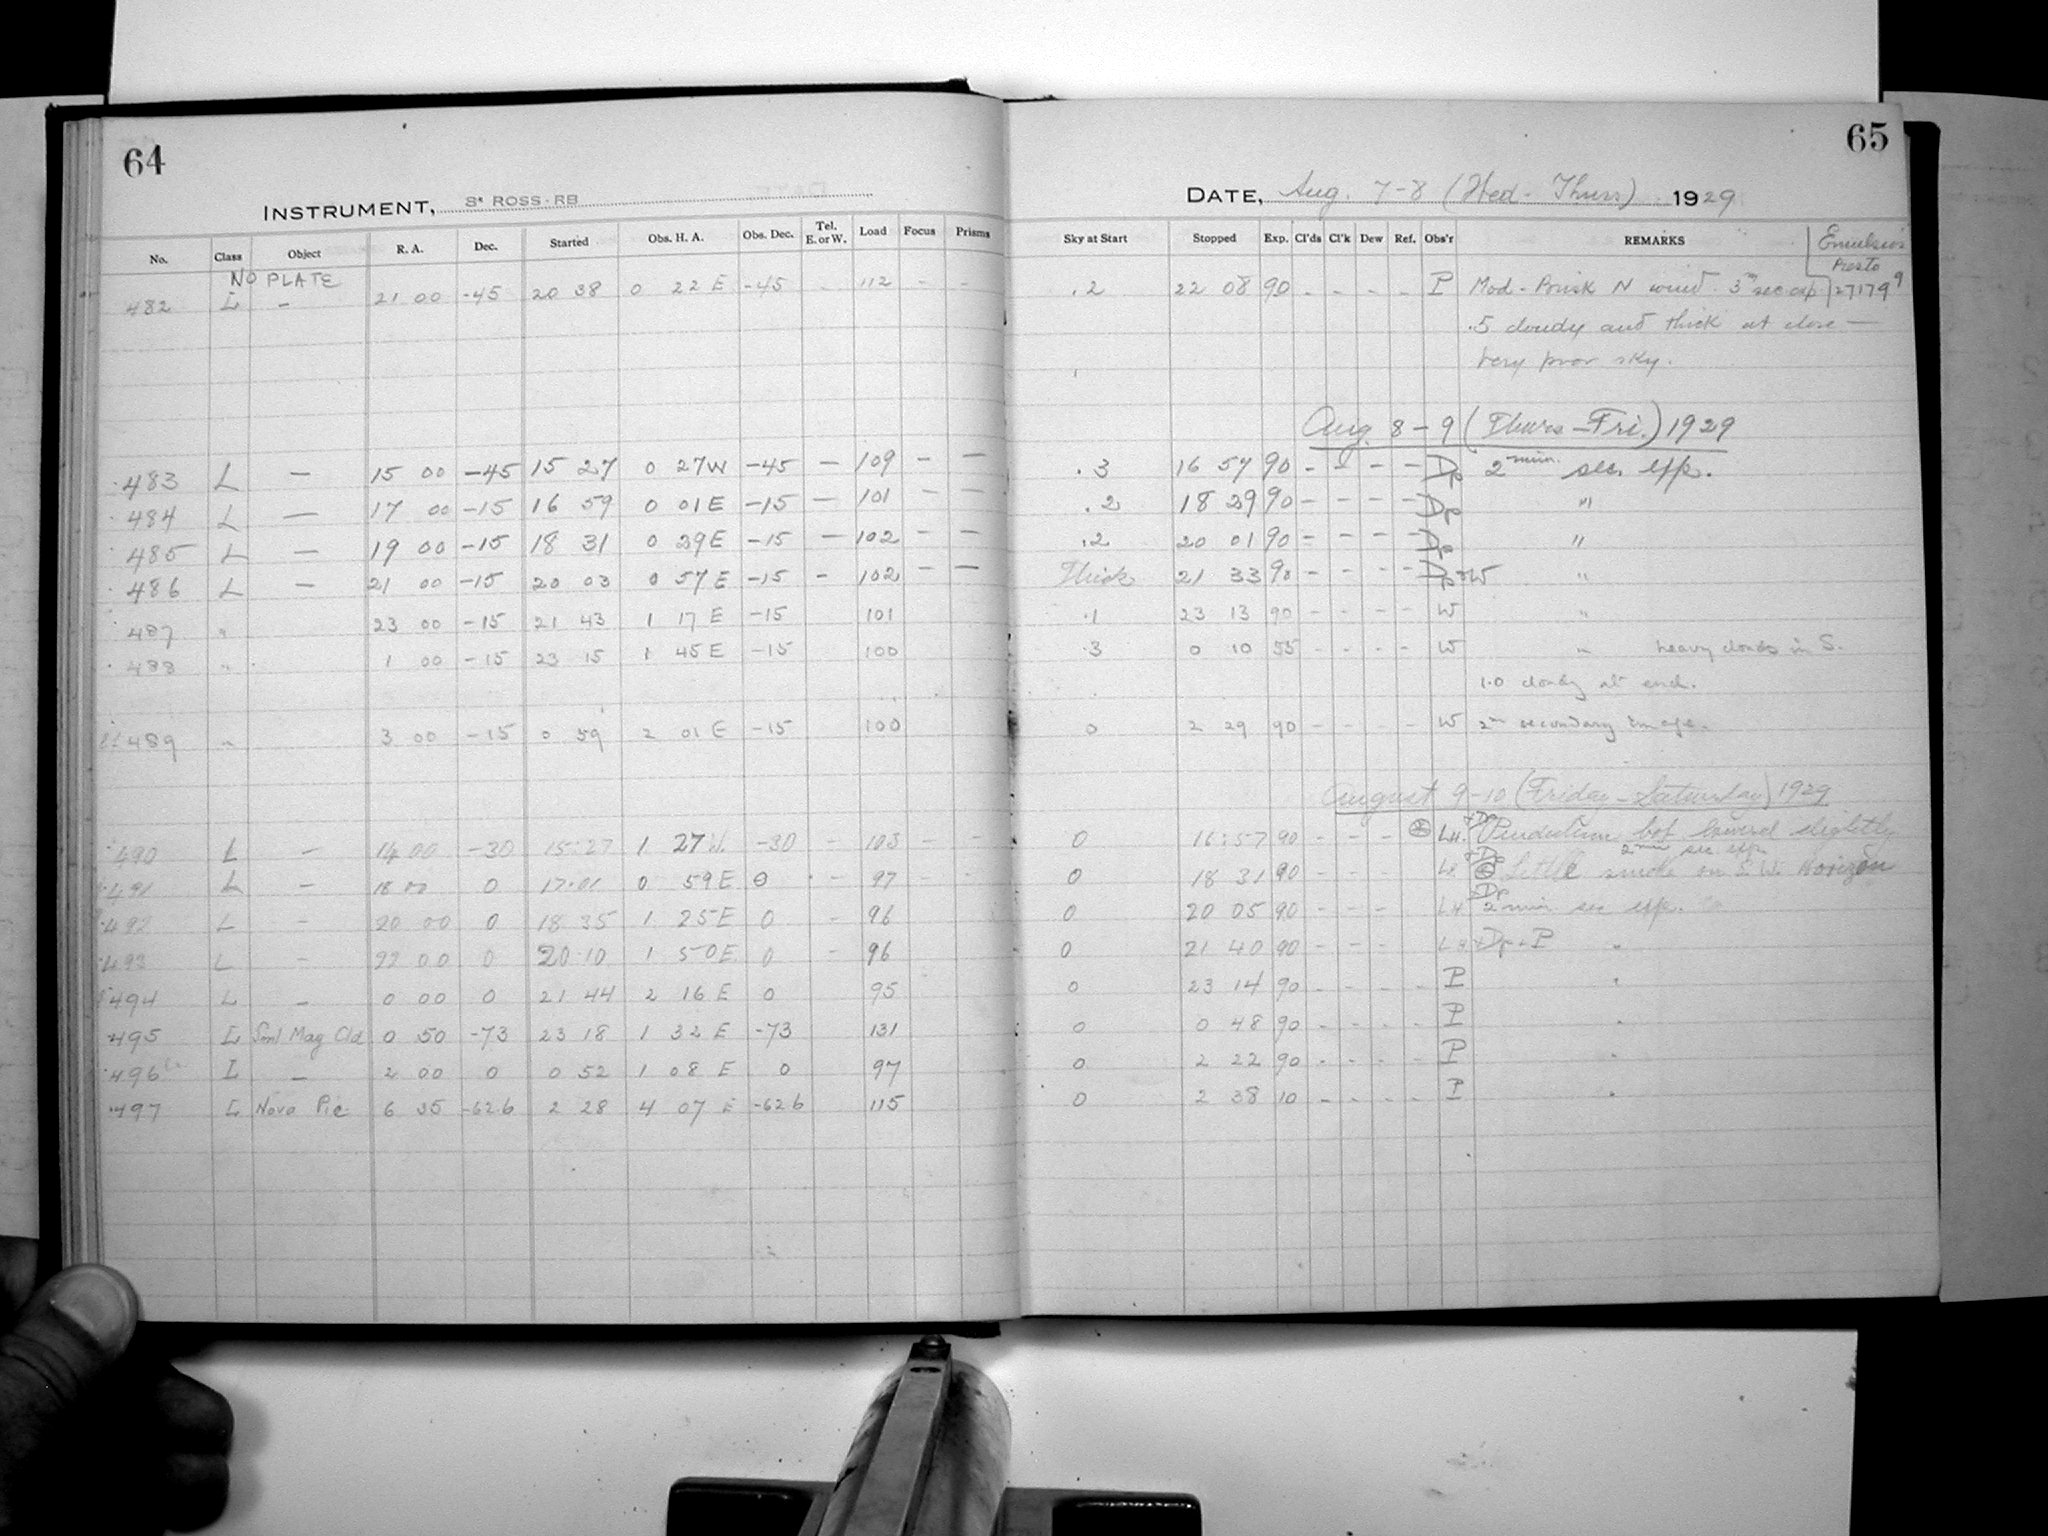 64
INSTRUMENT, 3" ROSS-RB
No. Class Object R. A. Dec. Started Obs. H. A. Obs. Dec. Tel. E. or W. Load Focus Prisms
NO PLATE
482 L – 21 00 -45 20 38 0 22 E -45 112 - -
483 L — 15 00 -45 15 27 0 27 W -45 — 109 - —
484 L — 17 00 -15 16 59 0 01 E -15 — 101 - —
485 L — 19 00 -15 18 31 0 29 E -15 — 102 - —
486 L — 21 00 -15 20 03 0 57 E -15 - 102 - —
487 " 23 00 -15 21 43 1 17 E -15 101
488 " 1 00 -15 23 15 1 45 E -15 100
489 " 3 00 -15 0 59 2 01 E -15 100
490 L – 14 00 -30 15:27 1 27 W -30 - 103 - -
491 L – 18 00 0 17·01 0 59 E 0 - 97 - -
492 L – 20 00 0 18 35 1 25 E 0 - 96
493 L – 22 00 0 20·10 1 50 E 0 - 96
494 L – 0 00 0 21 44 2 16 E 0 95
495 L Sml Mag Cld 0 50 -73 23 18 1 32 E -73 131
496 L – 2 00 0 0 52 1 08 E 0 97
497 L Nova Pic 6 35 -62 6 2 28 4 07 E -62 6 115
65
DATE, Aug. 7-8 (Wed - Thurs) 1929
Sky at Start Stopped Exp. Cl'ds Cl'k Dew Ref. Obs'r REMARKS Emulsion
Presto
.2 22 08 90 - - - - P Mod-Brisk N wind. 3m sec exp 27179
.5 cloudy and thick at close —
Very poor sky.
Aug. 8-9 (Thurs-Fri.) 1929
.3 16 57 90 - - - - Dp 2 min. sec. exp.
.2 18 29 90 - - - - Dp "
.2 20 01 90 - - - - Dp "
Thick 21 33 90 - - - - Dp+W "
.1 23 13 90 - - - - W "
.3 0 10 55 - - - - W " heavy clouds in S.
1.0 cloudy at end.
0 2 29 90 - - - - W 2m secondary image.
August 9-10 (Friday-Saturday) 1929
0 16:57 90 - - - LH+Dp Pendulum bob lowered slightly
2 min sec exp.
0 18 31 90 - - - LH+Dp Little smoke on S.W. Horizon
0 20 05 90 - - - LH+Dp 2 min sec exp.
0 21 40 90 - - - LH+Dp+P "
0 23 14 90 - - - - P "
0 0 48 90 - - - - P "
0 2 22 90 - - - - P "
0 2 38 10 - - - - P "